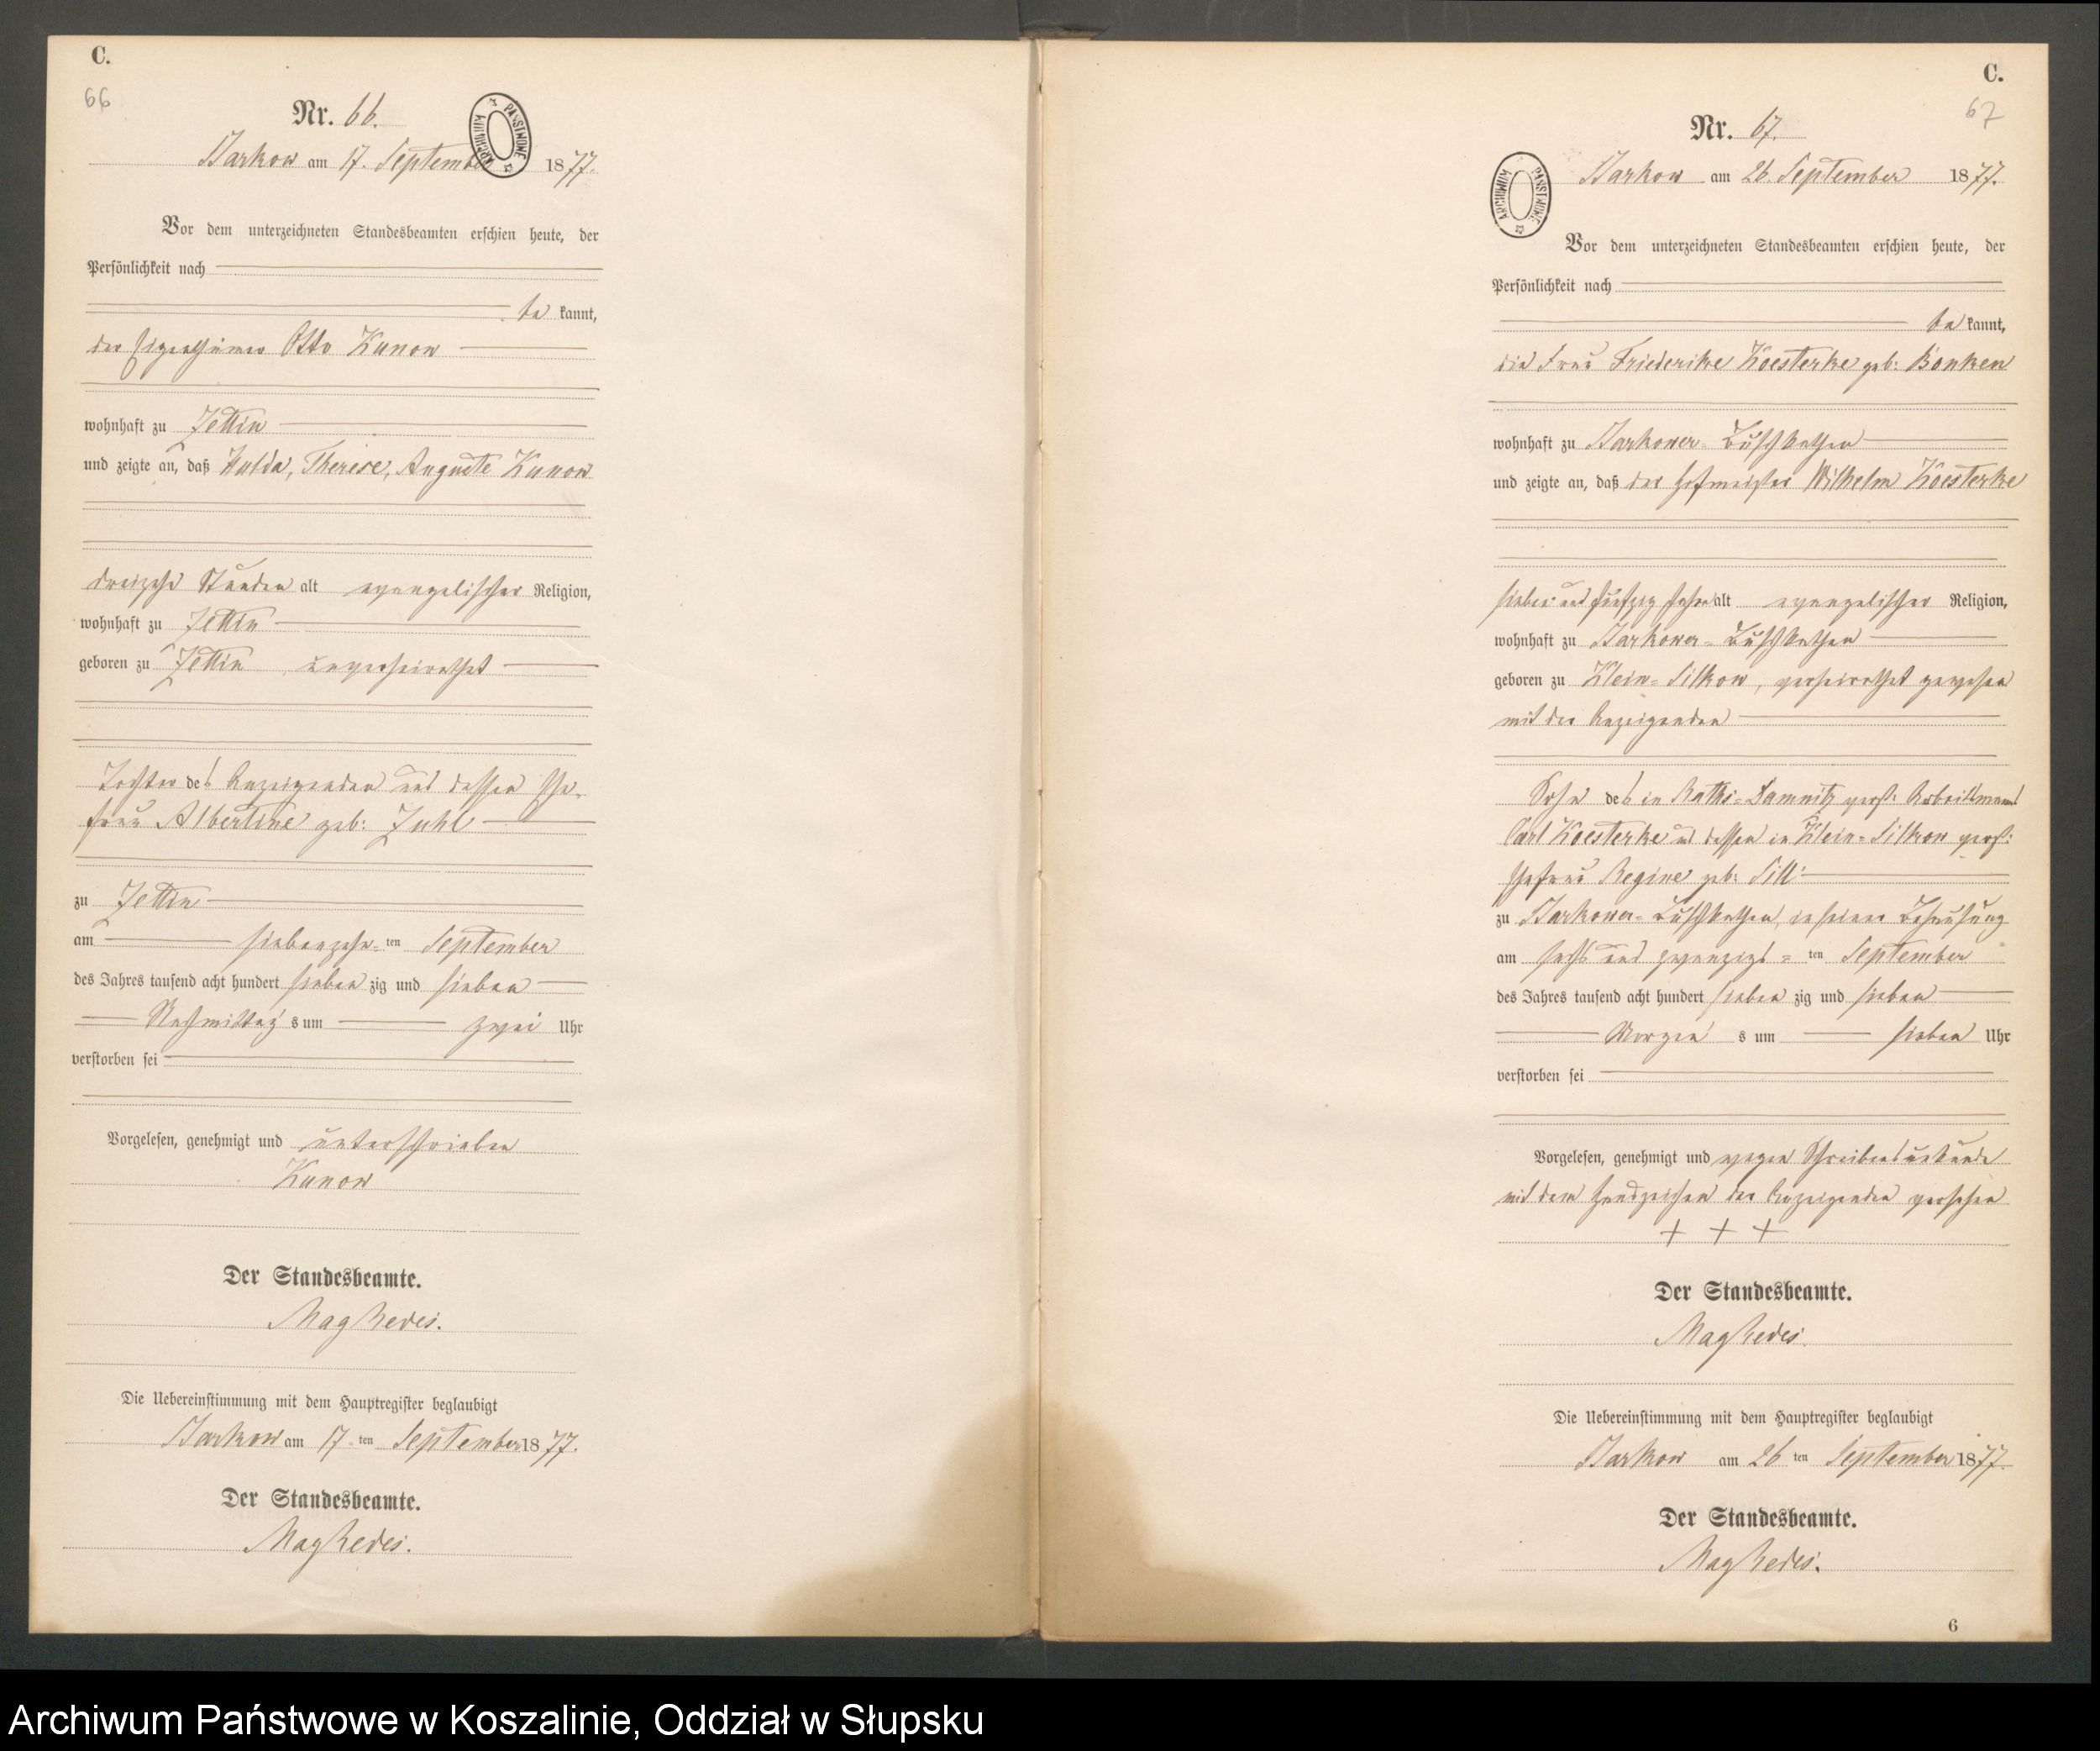 C.
66
Nr. 66.
ARCHIWUM PAŃSTWOWE
Barkow am 17. September 1877.
Vor dem unterzeichneten Standesbeamten erschien heute, der
Persönlichkeit nach
be kannt,
der Eigenthümer Otto Kunow
wohnhaft zu Zettin
und zeigte an, daß Hulda, Therese, Auguste Kunow
dreizehn Stunden alt evangelischer Religion,
wohnhaft zu Zettin
geboren zu Zettin, unverheirathet
Tochter des Anzeigenden und dessen Ehe-
frau Albertine geb: Juhl
zu Zettin
am siebenzehn-ten September
des Jahres tausend acht hundert sieben zig und sieben
Nachmittag s um zwei Uhr
verstorben sei
Vorgelesen, genehmigt und unterschrieben
Kunow
Der Standesbeamte.
Die Uebereinstimmung mit dem Hauptregister beglaubigt
Barkow am 17 ten September 1877.
Der Standesbeamte.
C.
67
Nr. 67.
ARCHIWUM PAŃSTWOWE
Barkow am 26. September 1877.
Vor dem unterzeichneten Standesbeamten erschien heute, der
Persönlichkeit nach
be kannt,
die Frau Friederike Koesterke geb: Bonken
wohnhaft zu Barkower-Buschkathen
und zeigte an, daß der Hofmeister Wilhelm Koesterke
sieben und fünfzig Jahre alt evangelischer Religion,
wohnhaft zu Barkower-Buschkathen
geboren zu Klein-Silkow, verheirathet gewesen
mit der Anzeigenden
Sohn des in Raths-Damnitz verst: Arbeitsmanns
Carl Koesterke und dessen in Klein-Silkow verst:
Ehefrau Regine geb: Sill
zu Barkower-Buschkathen, in seiner Behausung
am sechs und zwanzigs-ten September
des Jahres tausend acht hundert sieben zig und sieben
Morgen s um sieben Uhr
verstorben sei
Vorgelesen, genehmigt und wegen Schreibensunkunde
mit dem Handzeichen der Anzeigenden versehen
+ + +
Der Standesbeamte.
Die Uebereinstimmung mit dem Hauptregister beglaubigt
Barkow am 26 ten September 1877.
Der Standesbeamte.
6
Archiwum Państwowe w Koszalinie, Oddział w Słupsku